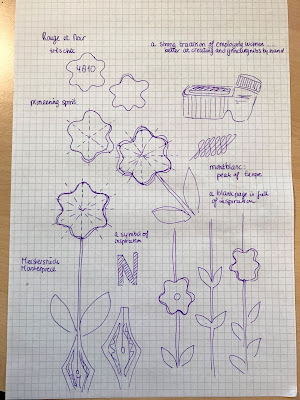 Rouge et Noir
très chic
a strong tradition of employing women
better at creating and grinding nibs by hand
4810
pioneering spirit
montblanc
peak of Europe
a blank page is full
of inspiration
a symbol of
inspiration
Meisterstück
Masterpiece
N